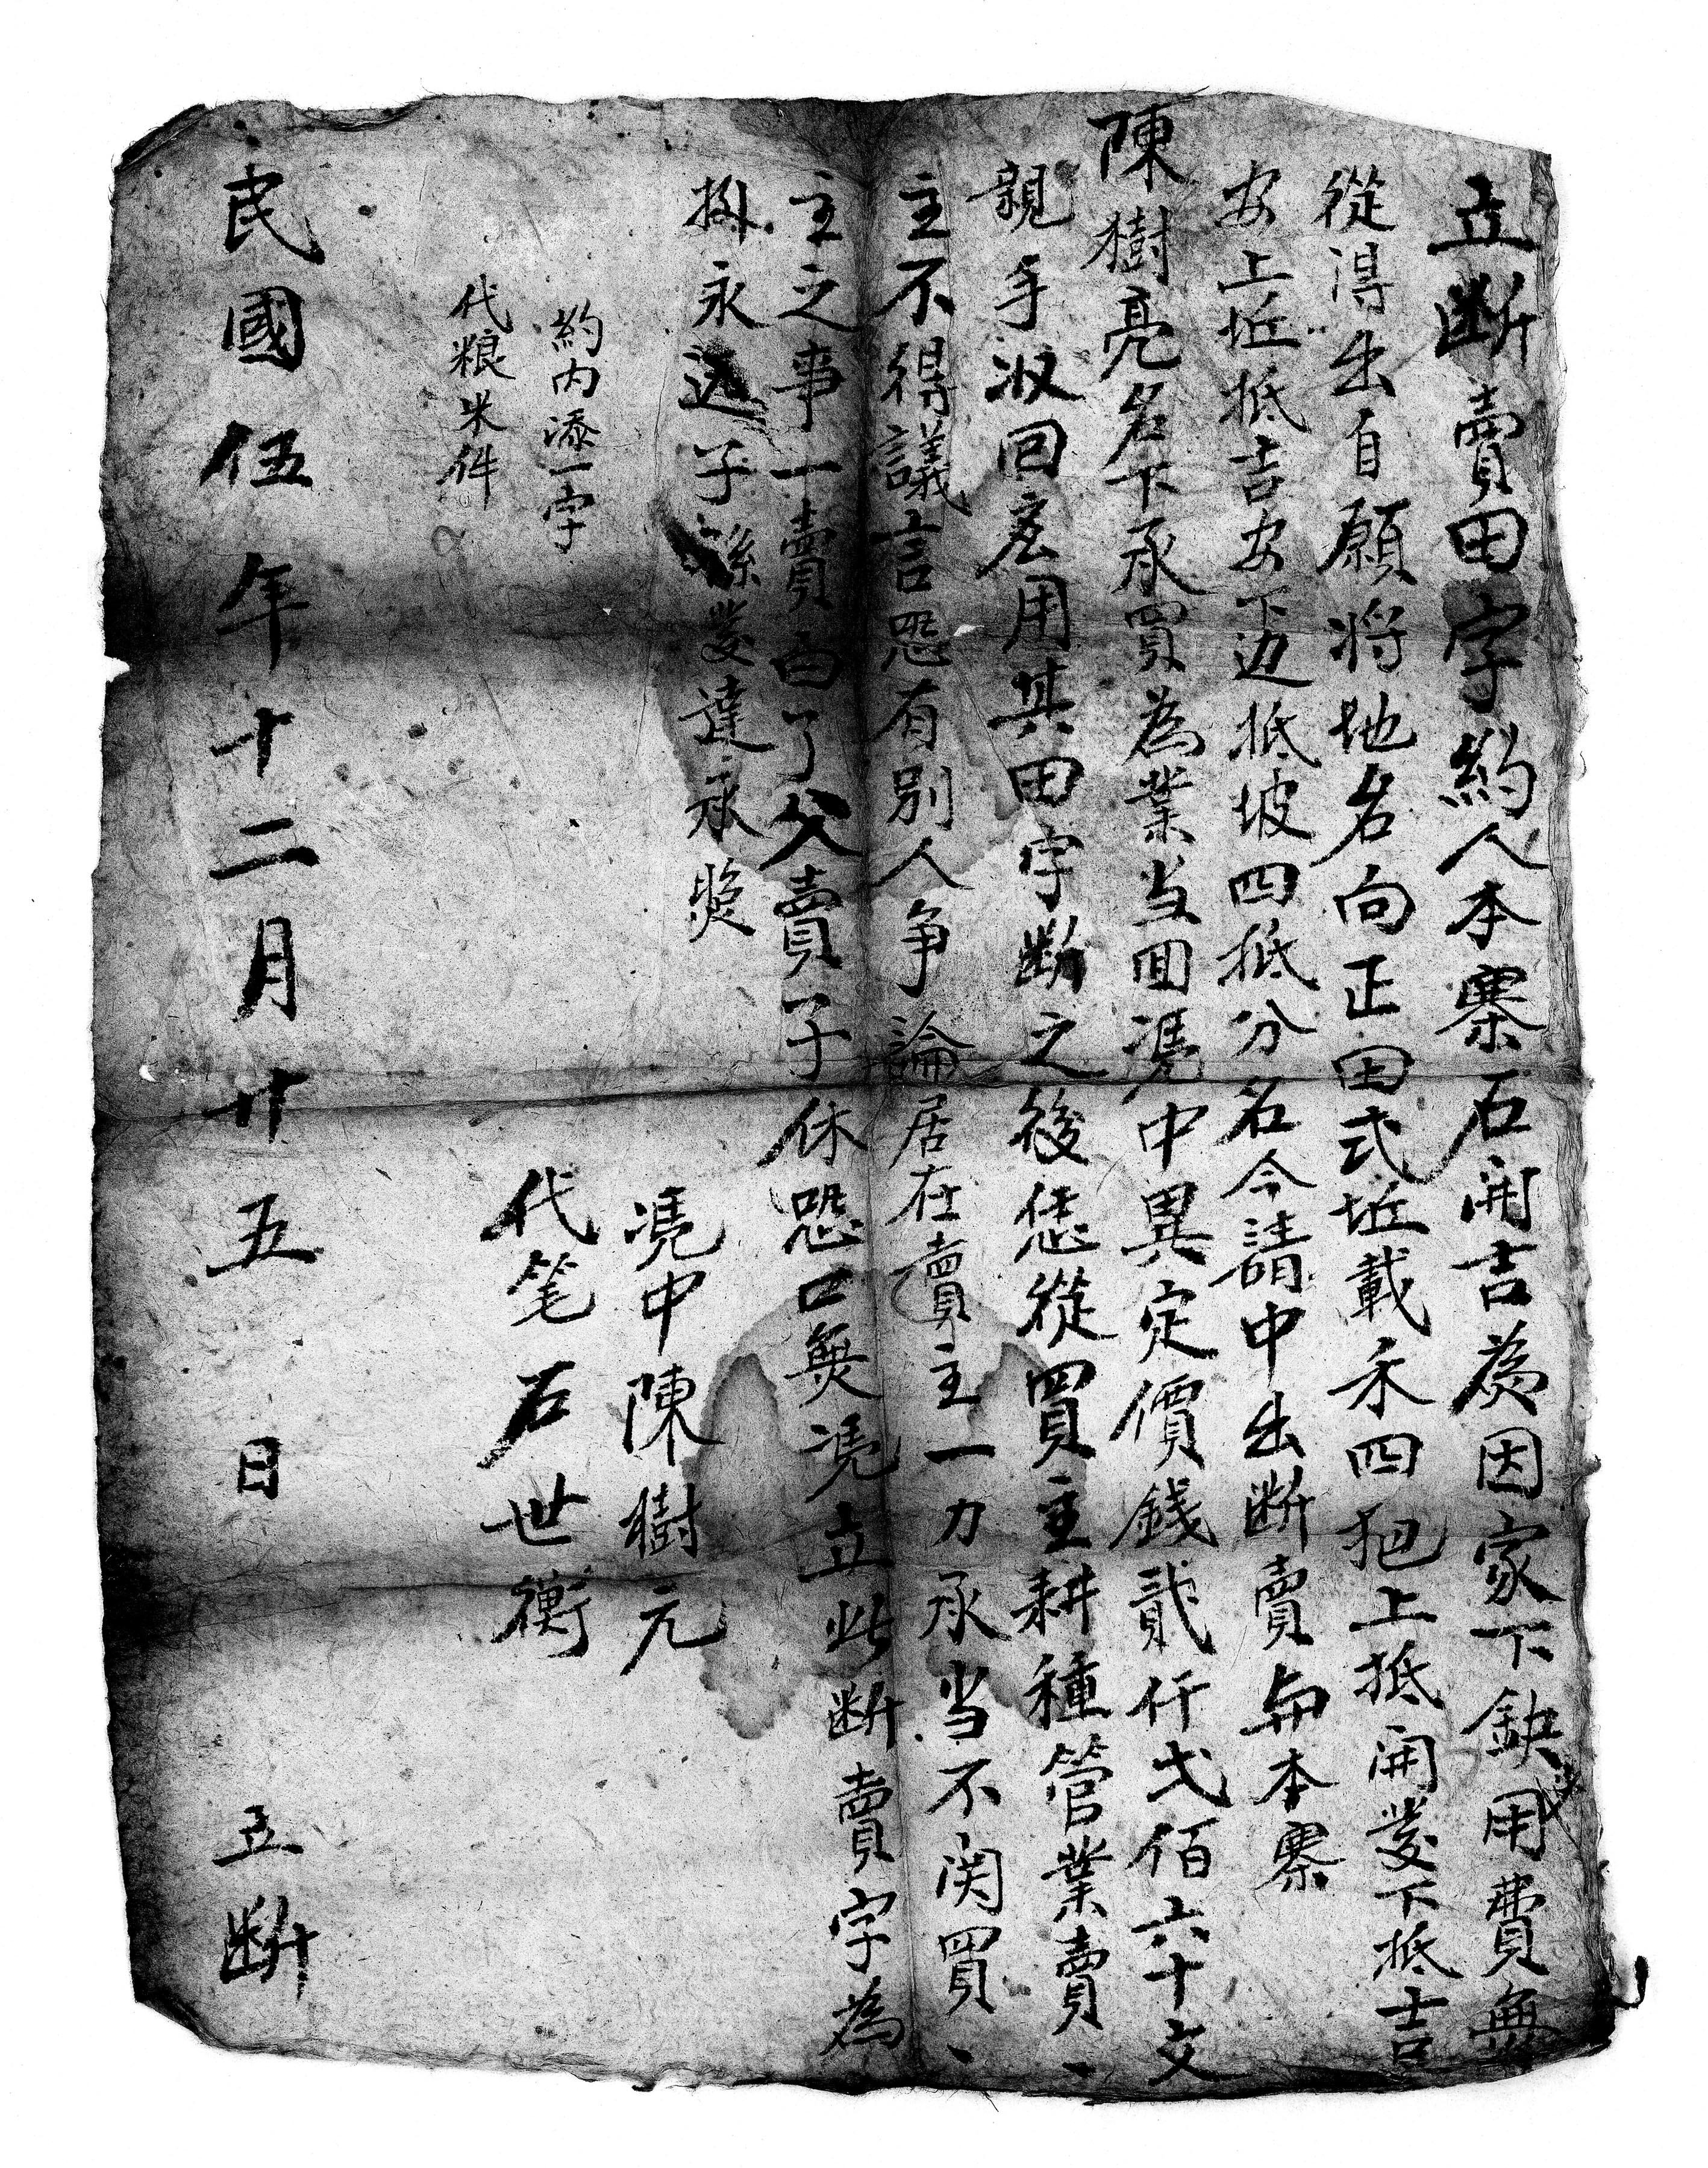 立断賣田字約人本寨石開吉為因家下缺用費無
從得出自願將地名向正田弍坵載禾四把上抵開發下抵吉
安上坵抵吉安下边抵坡四抵分名今請中出断賣与本寨
陳樹亮名下承買為業当面憑中異定價錢貳仟弍佰六十文
親手收回應用其田字断之後恁從買主耕種管業賣
主不得議言恐有別人争論居在賣主一力承当不関買
主之事一賣百了父賣子休恐口無憑立此断賣字為
㨿永远子孫發達承奨
約內添一字
代粮米件
憑中陳樹元
代笔石世衡
民國伍年十二月廿五日立断